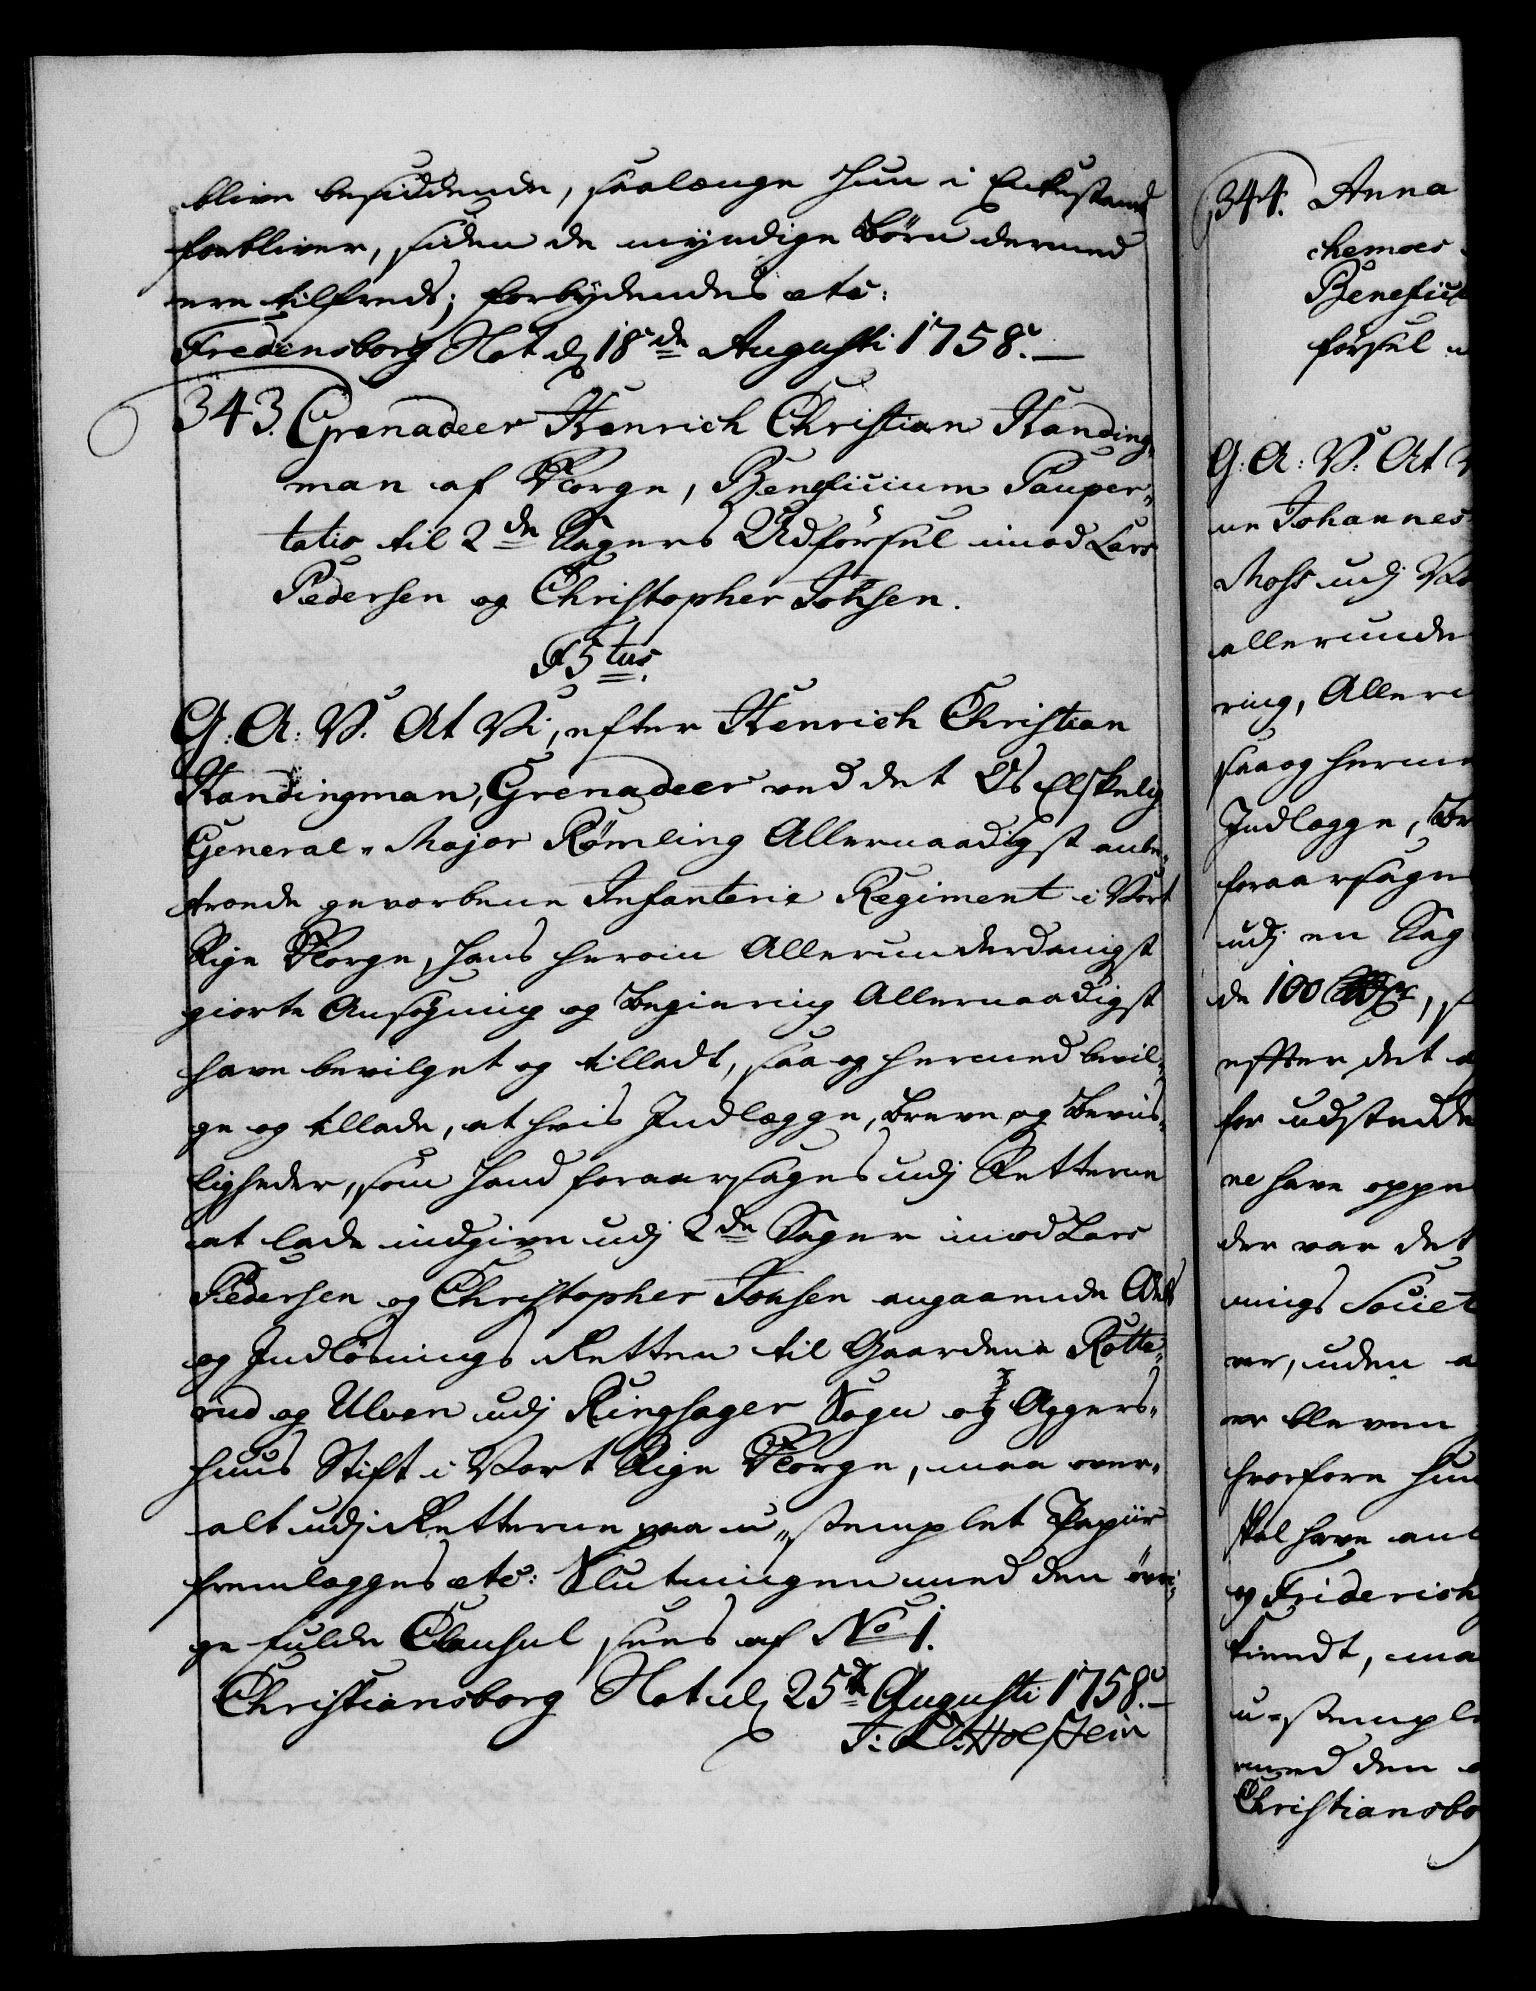 blive besiddende, saalænge hun i Enkestand
forbliver, siden de myndige Börn dermed
ere tilfreds; forbydendes etc:
Fredensborg Slot d. 18de Augusti 1758.
343. Grenadeer Henrich Christian Handing-
man af Norge, Beneficium Pauper-
tatis til 2de Sagers Udförsel imod Lars
Pedersen og Christopher Johsen.
F 5tus.
G: A: V: At Vi, efter Henrich Christian
Handingman, Grenadeer ved det Os Elskelig
General-Major Römling Allernaadigst anbe-
troede gevorbene Infanterie Regiment i Vort
Rige Norge, hans herom Allerunderdanigst
giorte Ansögning og Begiering Allernaadigst
have bevilget og tilladt, saa og hermed bevil-
ge og tillade, at hvis Indlægge, Breve og Beviis-
ligheder, som hand foraarsages udj Retterne
at lade indgive udj 2de Sager imod Lars
Pedersen og Christopher Johsen angaaende Odels
og Indlösnings Retten til Gaardene Rotte-
rud og Ulven udj Ringsager Sogn og Aggers-
huus Stift i Vort Rige Norge, maa over-
alt udj Retterne paa u-stemplet Papiir
fremlegges etc: Slutningen med den övri-
ge fulde Clausul sees af No 1.
Christiansborg Slot d. 25de Augusti 1758.
J: L: Holstein
344. Anna
chemoes
Benefici
försel
G: A: V: At
ne Johannes
Moss udj
allerunde
ring, Aller
saa og herme
Indlægge, Br
foraarsages
udj en Sag
de 100 Rdr,
efter det
for udstedde
ne have oppe
der var det
nings Societ
er, uden
er bleven
hvorfore hun
skal have an
og Friderich
kiendt, maa
u-stemple
med den
Christiansbo